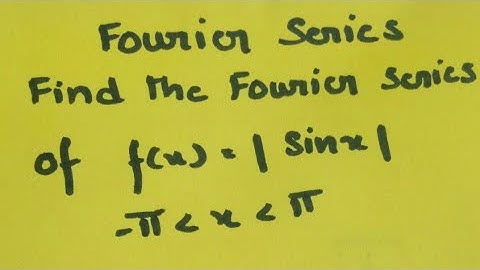 Fourier Series
Find The Fourier series
of f(x) = | sinx |
-π < x < π